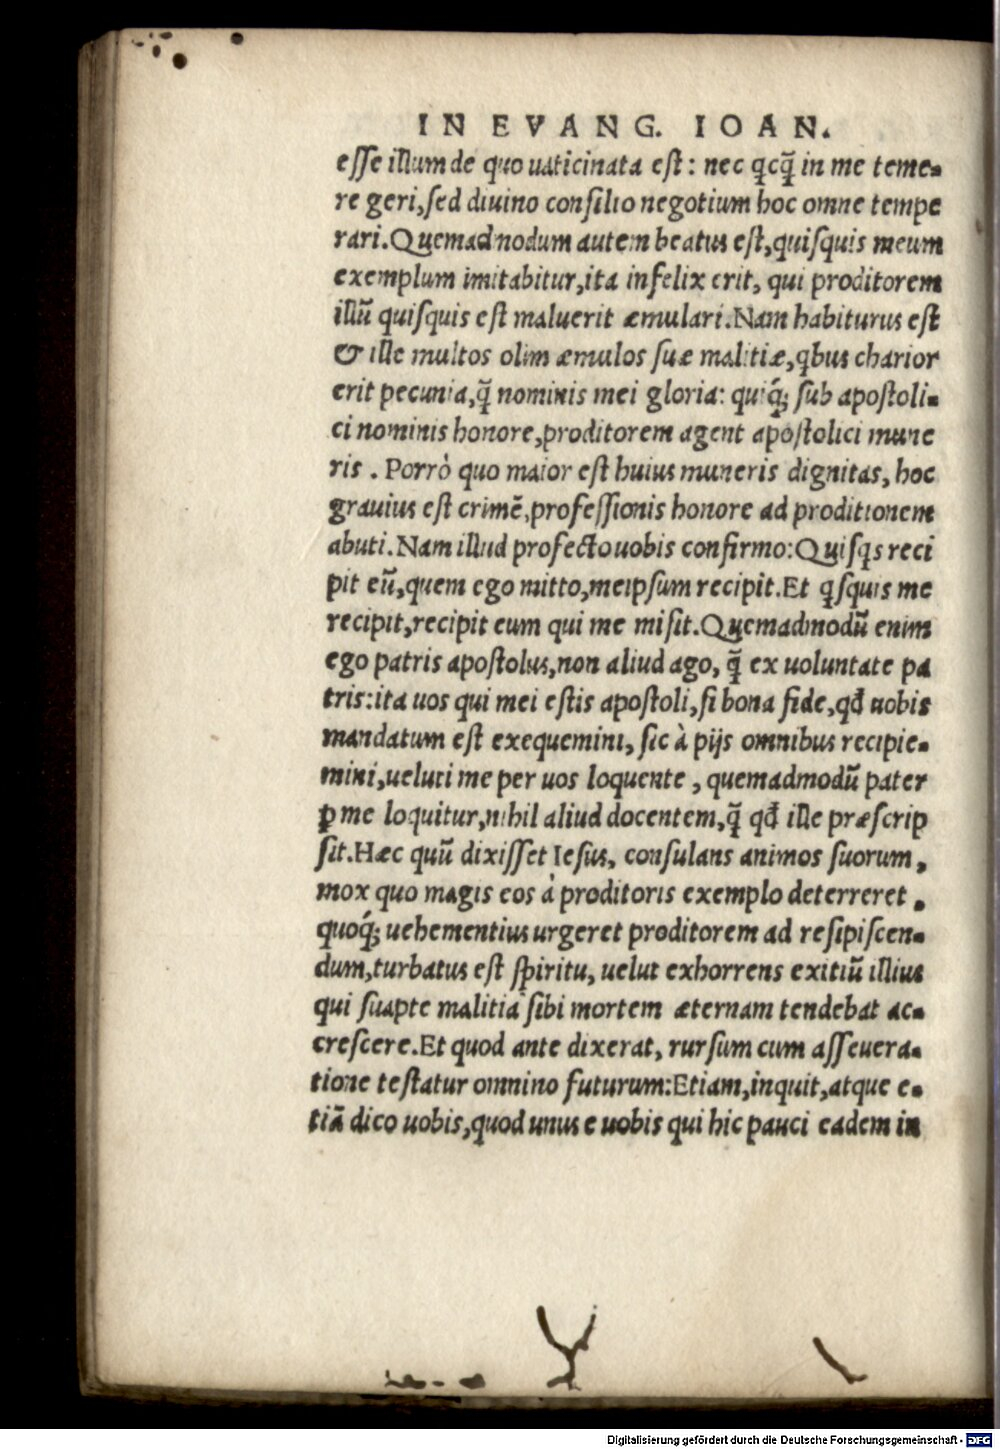 IN EVANG. IOAN.
esse illum de quo uaticinata est: nec qͥcq̃ in me teme-
re geri, sed diuino consilio negotium hoc omne tempe
rari. Quemadnodum autem beatus est, quisquis meum
exemplum imitabitur, ita infelix erit, qui proditorem
illũ quisquis est maluerit æmulari. Nam habiturus est
& ille multos olim æmulos suæ malitiæ, qͥbus charior
erit pecunia, q̃ nominis mei gloria: quiq́; sub apostoli-
ci nominis honore, proditorem agent apostolici mune
ris. Porrò quo maior est huius muneris dignitas, hoc
grauius est crimẽ, professionis honore ad proditionem
abuti. Nam illud profecto uobis confirmo: Quisqͥs reci
pit eũ, quem ego mitto, meipsum recipit. Et qͥsquis me
recipit, recipit eum qui me misit. Quemadmodũ enim
ego patris apostolus, non aliud ago, q̃ ex uoluntate pa
tris: ita uos qui mei estis apostoli, si bona fide, qđ uobis
mandatum est exequemini, sic à pijs omnibus recipie-
mini, ueluti me per uos loquente, quemadmodũ pater
ꝑ me loquitur, nihil aliud docentem, q̃ qđ ille præscrip
sit. Hæc quũ dixisset Iesus, consulans animos suorum,
mox quo magis eos à proditoris exemplo deterreret,
quoq́; uehementius urgeret proditorem ad resipiscen-
dum, turbatus est spiritu, uelut exhorrens exitiũ illius
qui suapte malitia sibi mortem æternam tendebat ac-
crescere. Et quod ante dixerat, rursum cum asseuera-
tione testatur omnino futurum: Etiam, inquit, atque e-
tiã dico uobis, quod unus e uobis qui hic pauci eadem in
Digitalisierung gefördert durch die Deutsche Forschungsgemeinschaft - DFG